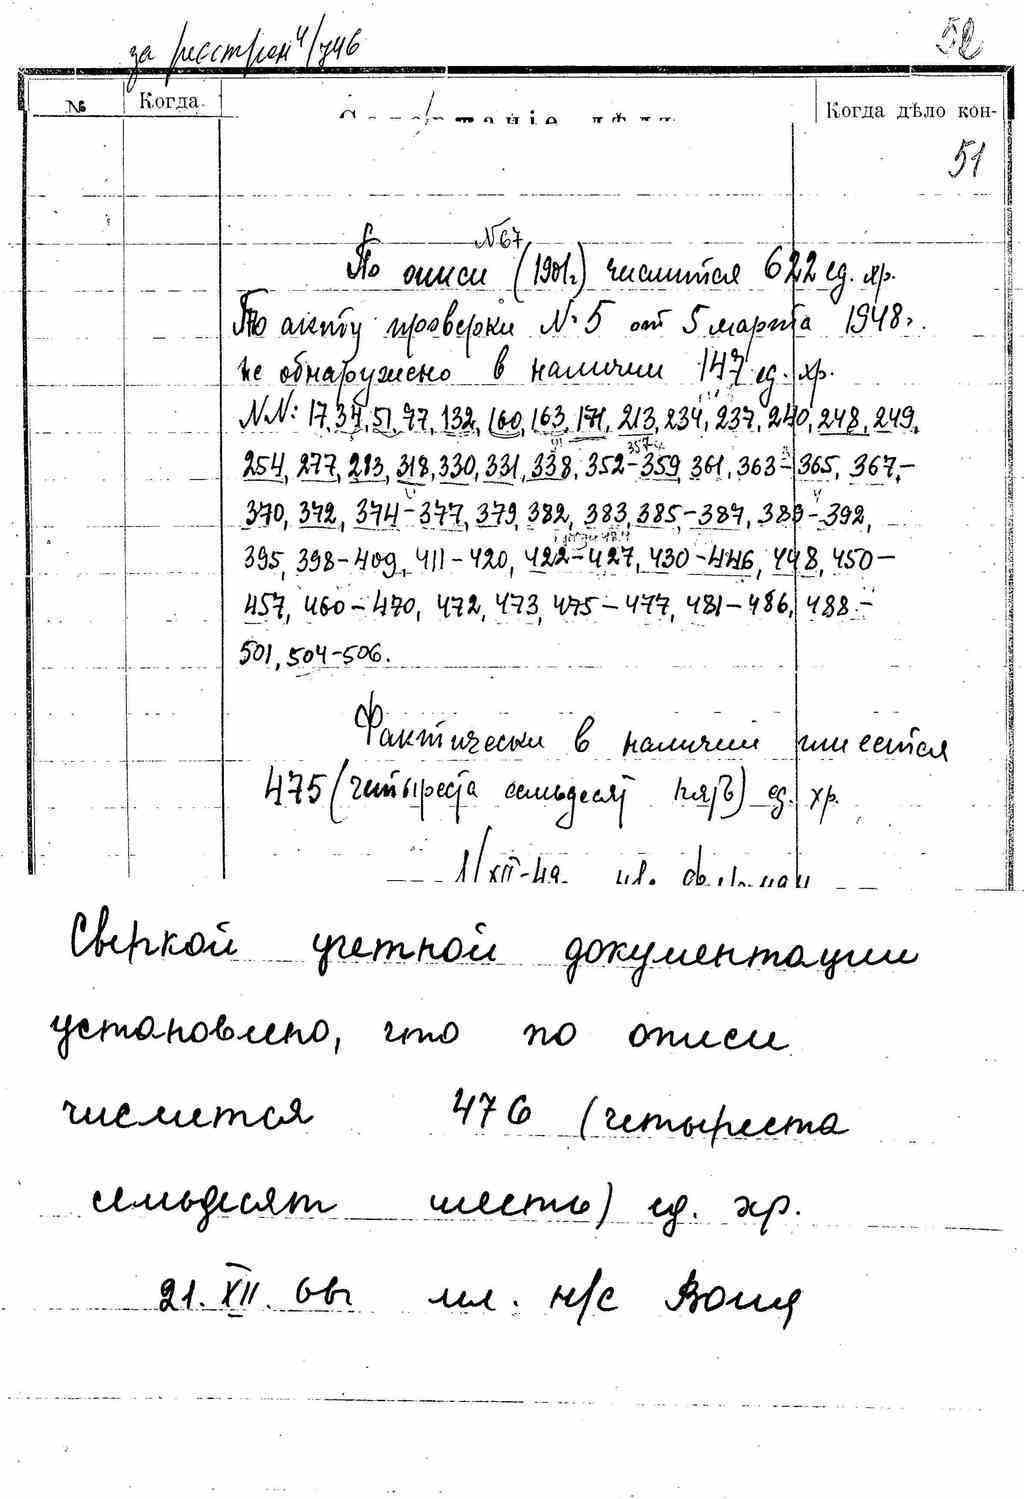 за реестром 4/746
52
№ Когда Содержаніе дѣлъ Когда дѣло кон-
51
№ 67
По описи (1901г.) числится 622 ед. хр.
По акту проверки № 5 от 5 марта 1948г.
не обнаружено в наличии 147 ед. хр.
№№: 17, 34, 51, 97, 132, 160, 163, 171, 213, 234, 237, 240, 248, 249,
254, 277, 283, 318, 330, 331, 338, 352-359, 361, 363-365, 367,-
370, 372, 374-377, 379, 382, 383, 385-387, 389-392,
395, 398-409, 411-420, 422-427, 430-446, 448, 450-
457, 460-470, 472, 473, 475-477, 481-486, 488-
501, 504-506.
Фактически в наличии имеется
475 (четыреста семьдесят пять) ед. хр.
Сверкой учетной документации
установлено, что по описи
числится 476 (четыреста
семьдесят шесть) ед. хр.
21. XII. мл. н/с